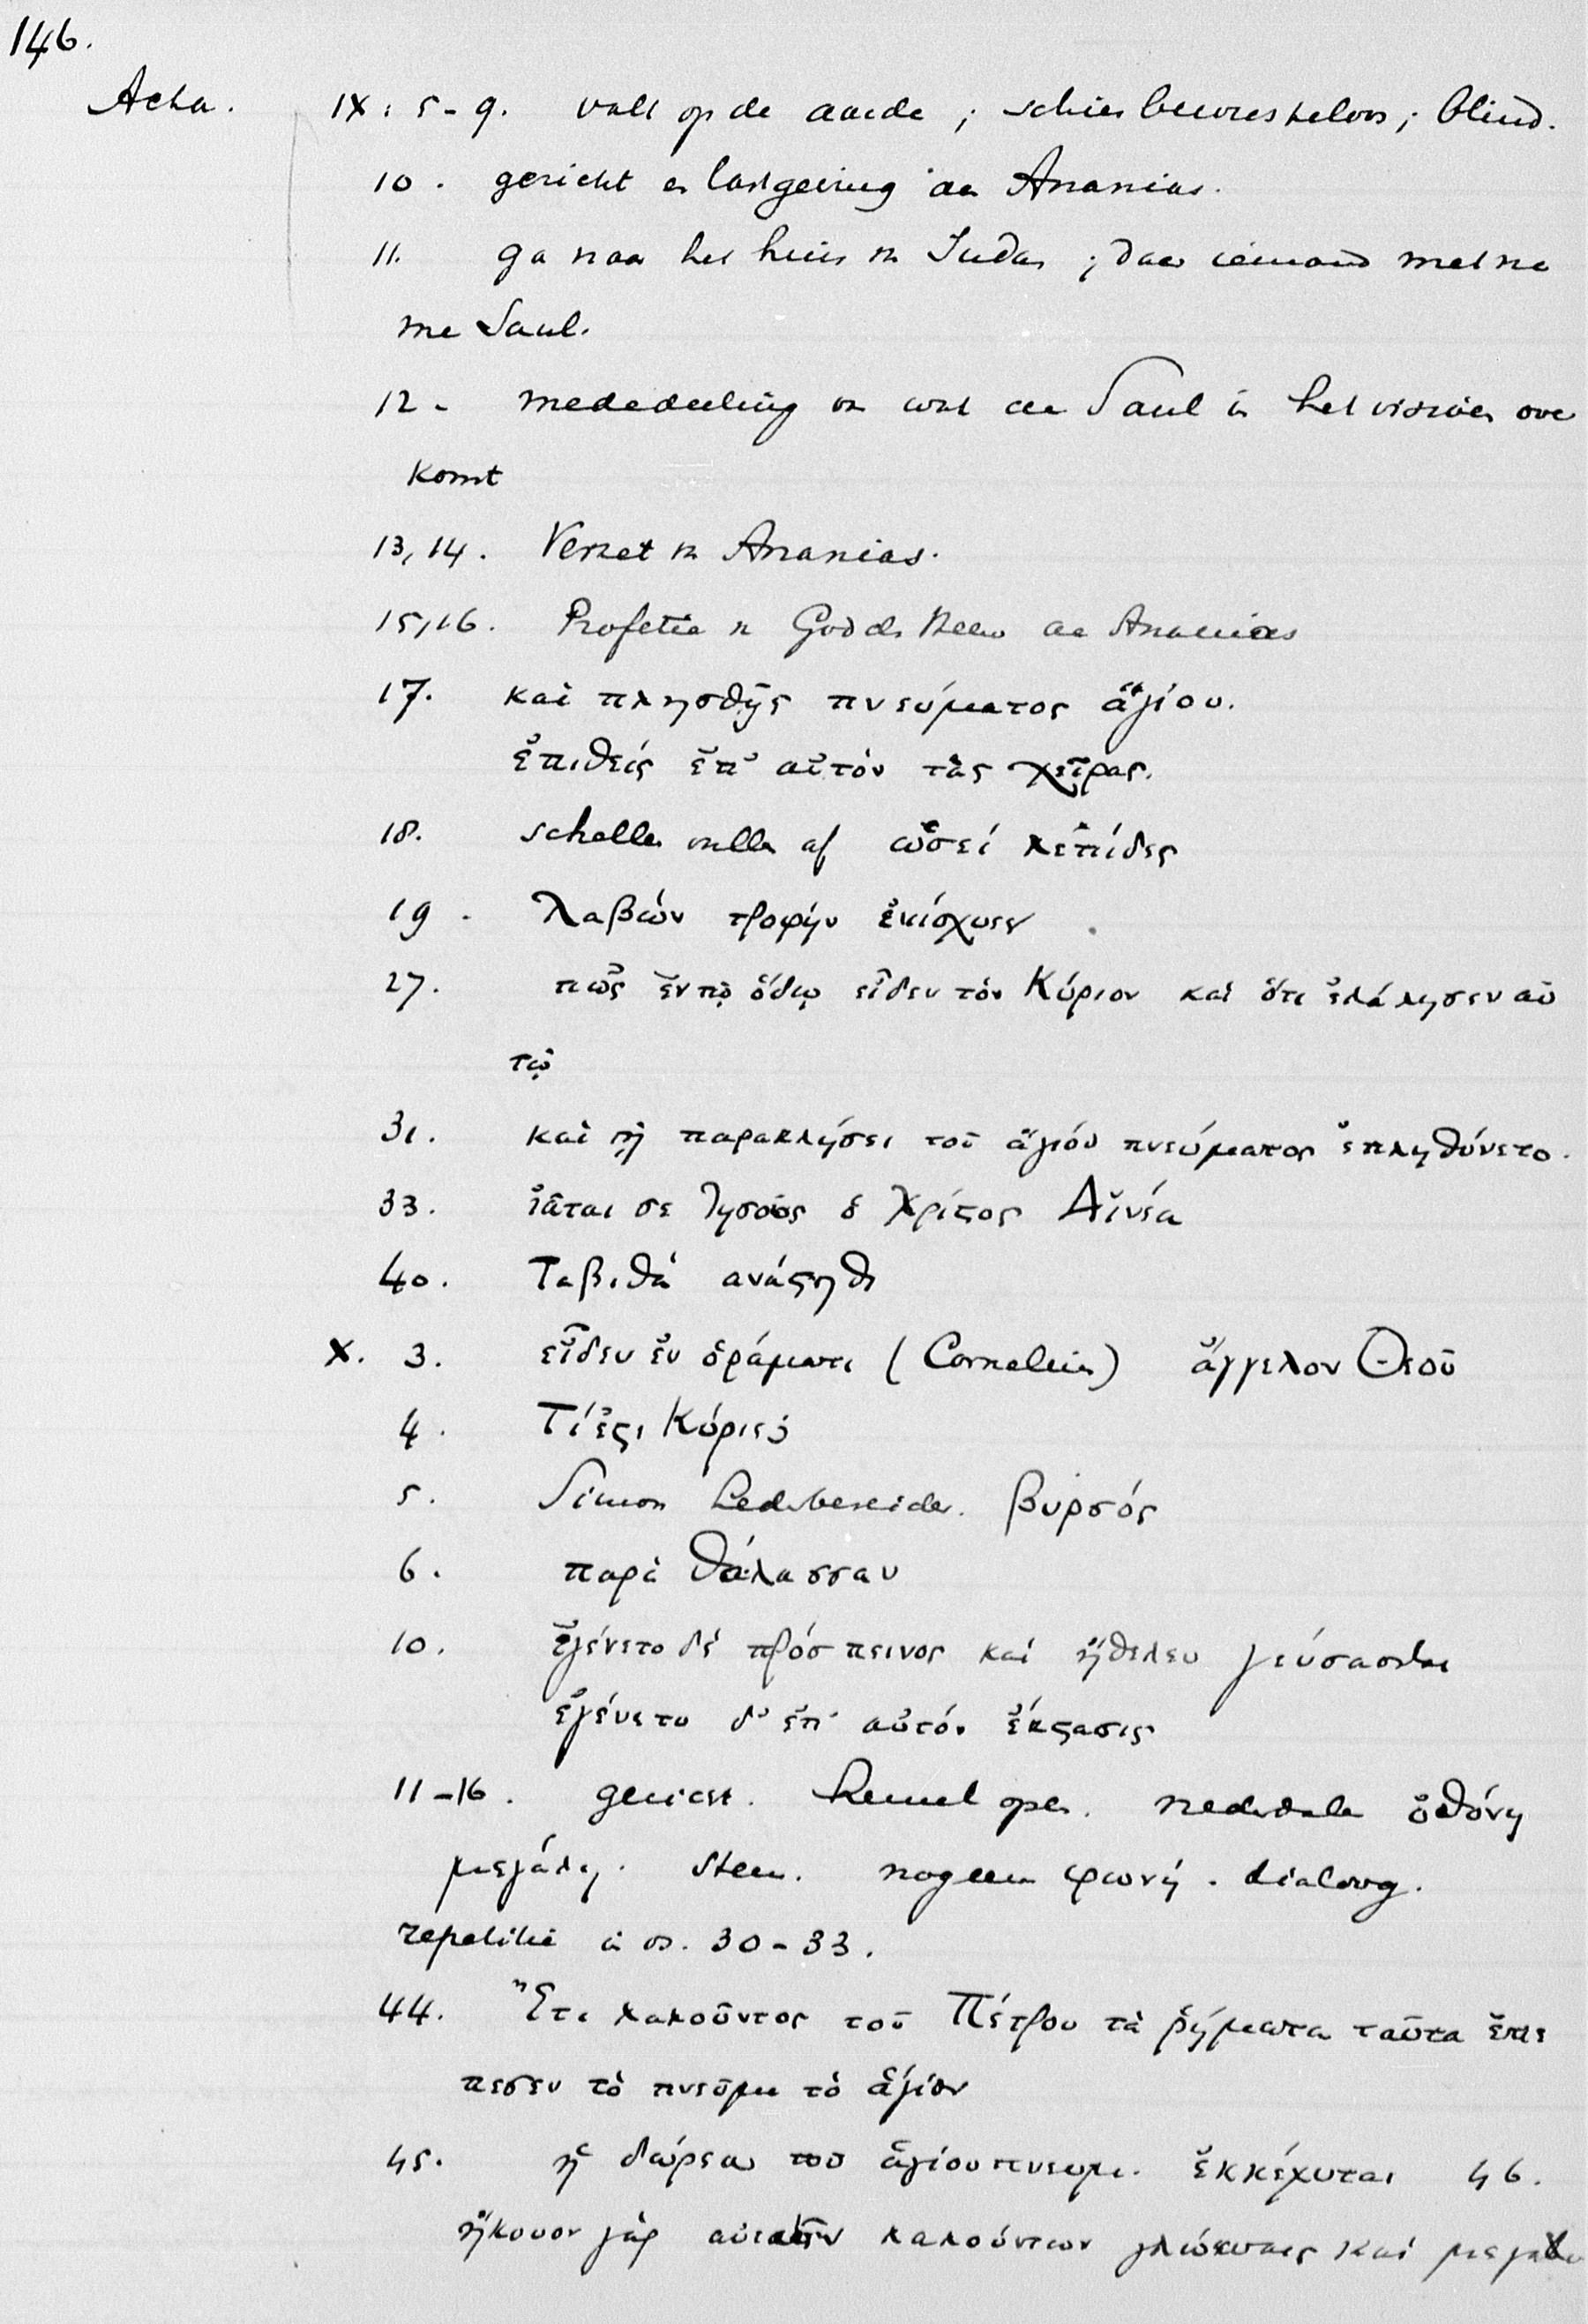 146.
Acta. IX: 5-9. valt op de aarde; schier bewusteloos; blind.
10. gezicht en lastgeving aan Ananias.
11. ga naar het huis v. Judas; daar iemand met na
me Saul.
12. mededeeling van wat aan Saul in het vizioen over
komt
13, 14. Verzet v. Ananias.
15, 16. Profetie v. God den Heer aan Ananias
17. καὶ πλησθῇς πνεύματος ἁγίου.
ἐπιθείς ἐπ' αὐτόν τὰς χεῖρας.
18. schellen vallen af ὡσεί λεπίδες
19. λαβών τροφήν ἐνίσχυσεν
27. πῶς ἐν τῇ ὁδῷ εἶδεν τὸν Κύριον καὶ ὅτι ἐλάλησεν αὐ
τῷ
31. καὶ τῇ παρακλήσει τοῦ ἁγίου πνεύματος ἐπληθύνετο.
33. ἰᾶται σε Ἰησοῦς ὁ Χρίστος Αἰνέα
40. Ταβιθά ανάστηθι
X. 3. εἶδεν ἐν ὁράματι (Cornelius) ἄγγελον Θεοῦ
4. Τί ἐστι Κύριε;
5. Simon Lederbereider. βυρσός
6. παρὰ θάλασσαν
10. ἐγένετο δέ πρόσπεινος καί ἤθελεν γεύσασθαι
ἐγένετο δ' ἐπ' αὐτόν ἔκστασις
11-16. gezicht. hemel open. nederdalen ὀθόνη
μεγάλη. stem. nogeens φωνή. dialoog.
repetitie in vs. 30-33.
44. Ἔτι λαλοῦντος τοῦ Πέτρου τὰ ῥήματα ταῦτα ἔπε
πεσεν τὸ πνεῦμα τὸ ἅγιον
45. ἡ δώρεα τοῦ ἁγίου πνευμ. ἐκκέχυται 46.
ἤκουον γὰρ αὐτῶν λαλούντων γλώσσαις καί μεγαλυ